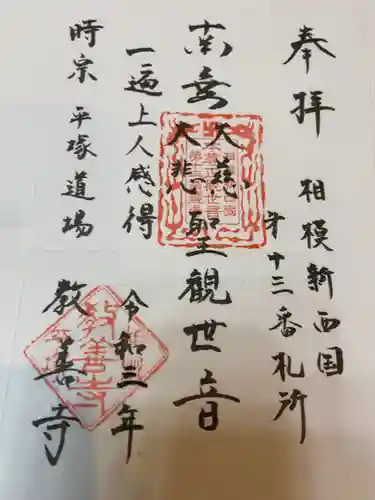 奉拝
相模新西国
第十三番札所
南無大慈大悲聖観世音
一遍上人感得
令和三年
時宗 平塚道場
教善寺